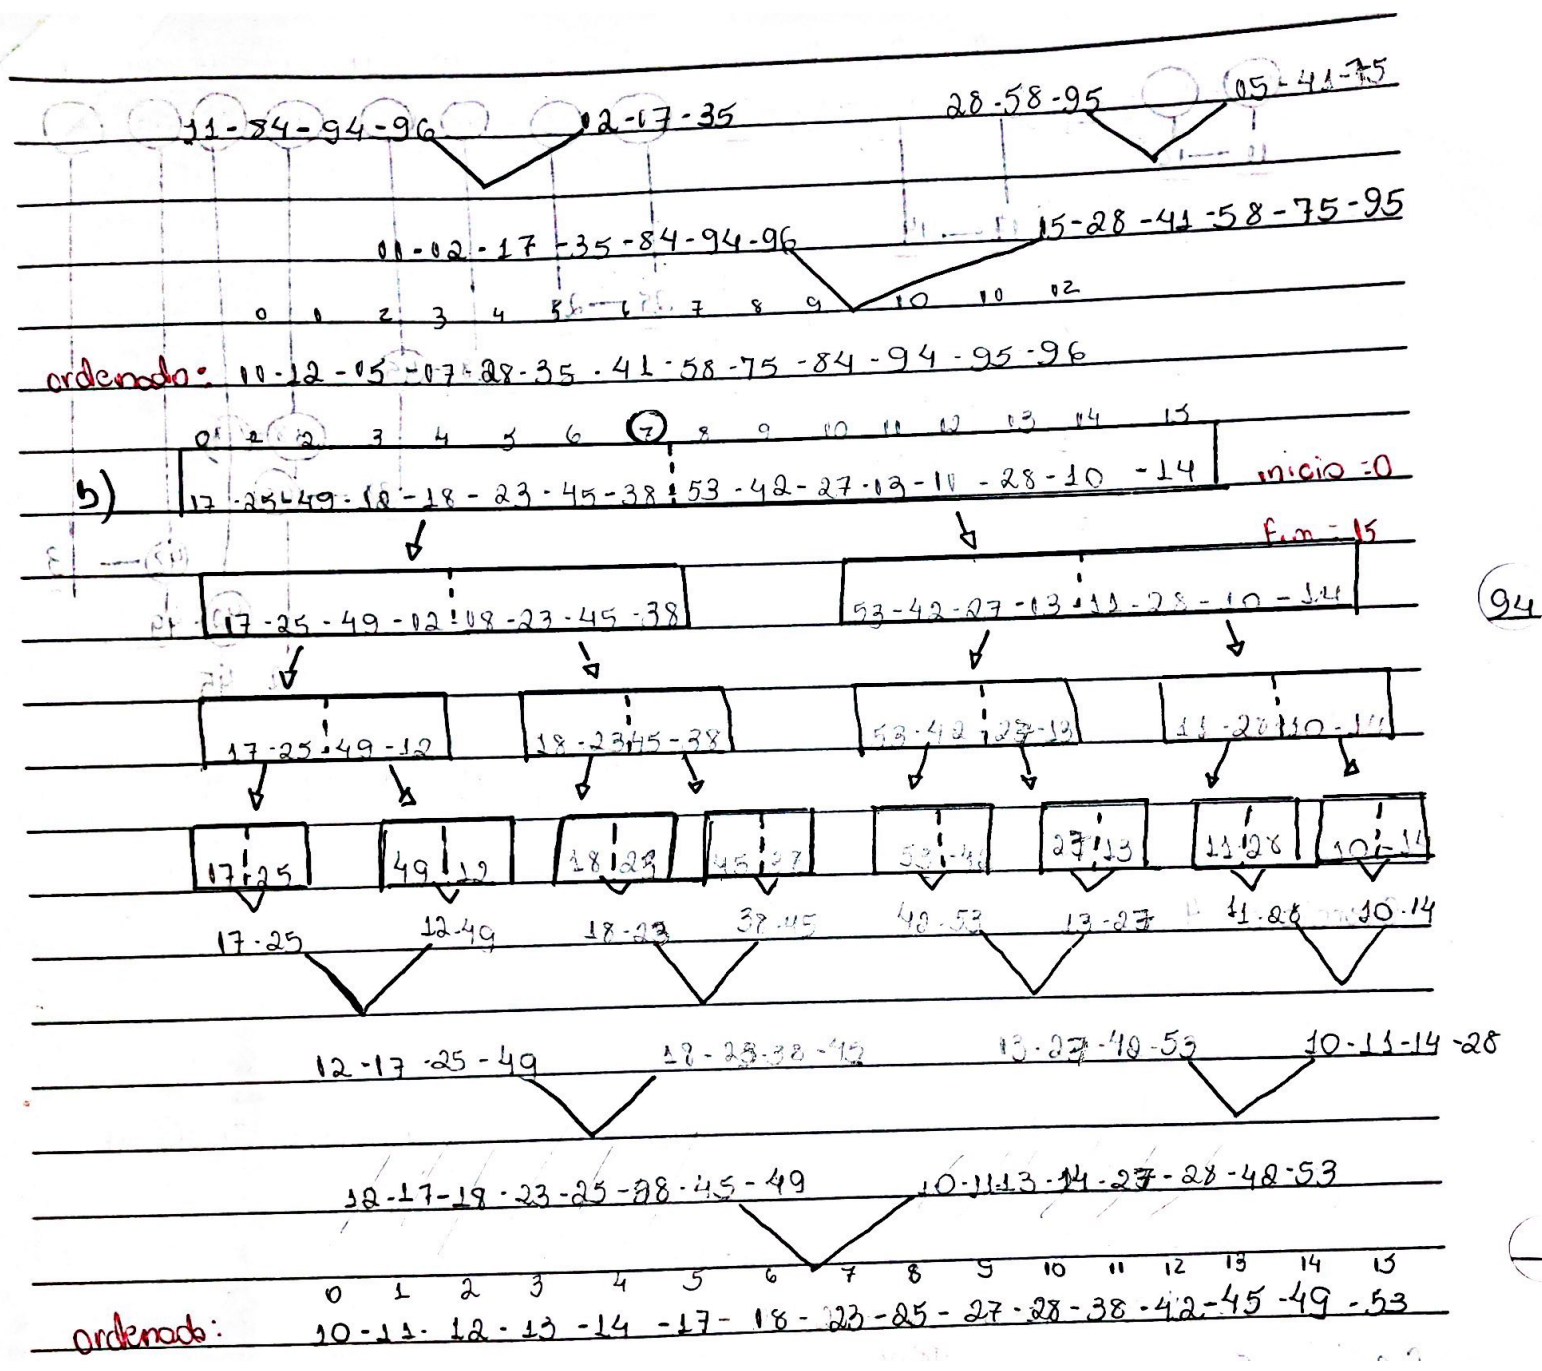 11-84-94-96 02-17-35 28-58-95 05-41-75
01-02-17-35-84-94-96 15-28-41-58-75-95
0 1 2 3 4 5 6 7 8 9 10 10 02
ordenado: 11-12-05-07-28-35-41-58-75-84-94-95-96
0 1 2 3 4 5 6 7 8 9 10 11 12 13 14 15
b) 17-25-49-12-18-23-45-38 53-42-27-13-11-28-10-14 inicio=0
Fin=15
17-25-49-12 18-23-45-38 53-42-27-13 11-28-10-14
94
17-25 49-12 18-23 45-38 53-42 27-13 11-28 10-14
17 25 49 12 18 23 45 38 53-42 27 13 11 28 10-14
17-25 12-49 18-23 38-45 42-53 13-27 11-28 10-14
12-17-25-49 18-23-38-45 13-27-42-53 10-11-14-28
12-17-18-23-25-38-45-49 10-11-13-14-27-28-42-53
0 1 2 3 4 5 6 7 8 9 10 11 12 13 14 15
ordenado: 10-11-12-13-14-17-18-23-25-27-28-38-42-45-49-53